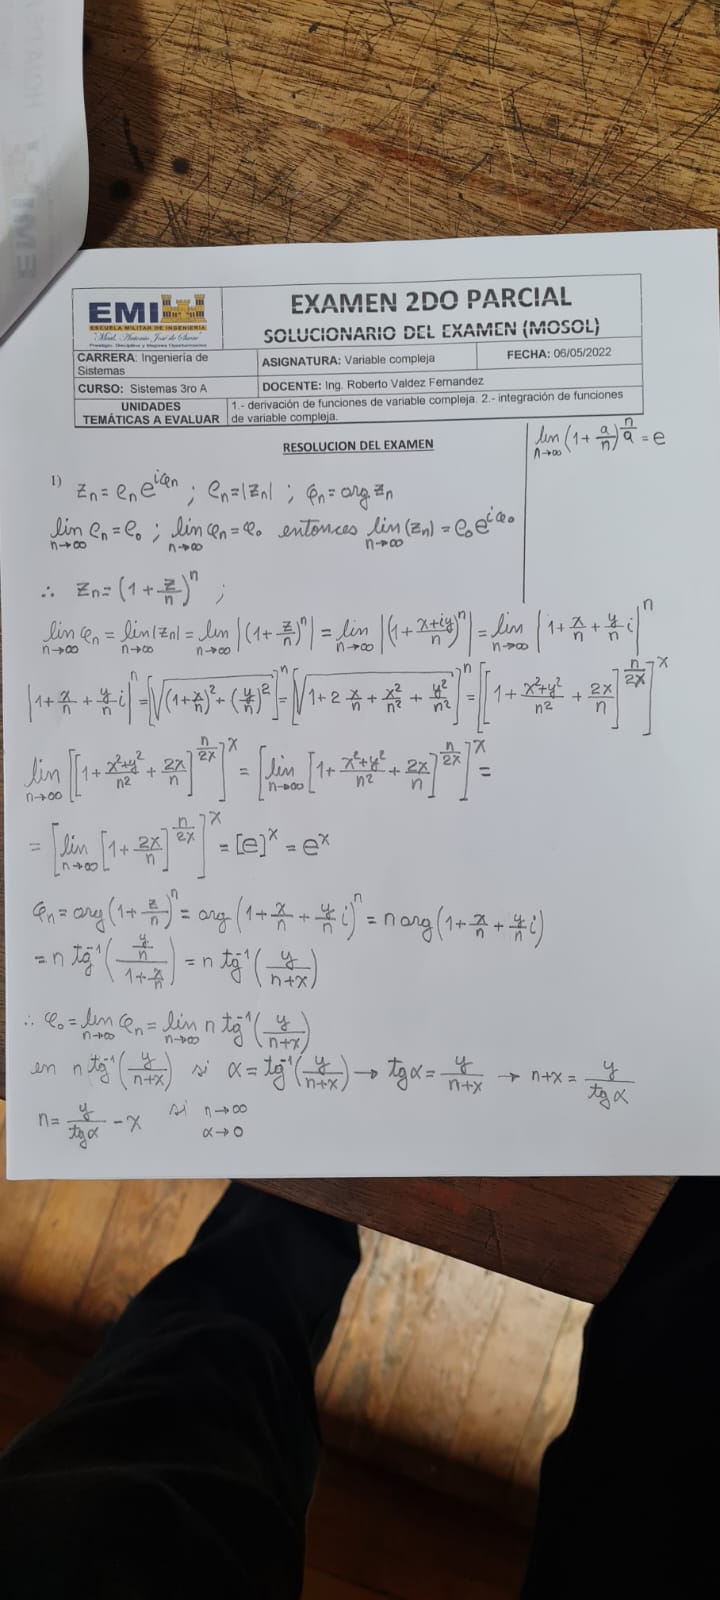 EMI
ESCUELA MILITAR DE INGENIERÍA
Mcal. Antonio José de Sucre
Prestigio, Disciplina y Mejores Oportunidades
EXAMEN 2DO PARCIAL
SOLUCIONARIO DEL EXAMEN (MOSOL)
CARRERA: Ingeniería de Sistemas
ASIGNATURA: Variable compleja
FECHA: 06/05/2022
CURSO: Sistemas 3ro A
DOCENTE: Ing. Roberto Valdez Fernandez
UNIDADES TEMÁTICAS A EVALUAR
1.- derivación de funciones de variable compleja. 2.- integración de funciones
de variable compleja.
RESOLUCION DEL EXAMEN
lim n→∞ (1 + a/n)^(n/a) = e
1) zn = ρn e^(iφn) ; ρn = |zn| ; φn = arg zn
lim n→∞ ρn = ρ0 ; lim n→∞ φn = φ0 entonces lim n→∞ (zn) = ρ0 e^(iφ0)
∴ zn = (1 + z/n)^n ;
lim n→∞ φn = lim n→∞ |zn| = lim n→∞ |(1 + z/n)^n| = lim n→∞ |(1 + (x+iy)/n)^n| = lim n→∞ |1 + x/n + y/n i|^n
|1 + x/n + y/n i|^n = [√((1 + x/n)² + (y/n)²)]^n = [√(1 + 2 x/n + x²/n² + y²/n²)]^n = [[1 + (x²+y²)/n² + 2x/n]^(n/2x)]^x
lim n→∞ [[1 + (x²+y²)/n² + 2x/n]^(n/2x)]^x = [lim n→∞ [1 + (x²+y²)/n² + 2x/n]^(n/2x)]^x =
= [lim n→∞ [1 + 2x/n]^(n/2x)]^x = [e]^x = e^x
φn = arg (1 + z/n)^n = arg (1 + x/n + y/n i)^n = n arg (1 + x/n + y/n i)
= n tg⁻¹((y/n)/(1 + x/n)) = n tg⁻¹(y/(n+x))
∴ φ0 = lim n→∞ φn = lim n→∞ n tg⁻¹(y/(n+x))
en n tg⁻¹(y/(n+x)) si α = tg⁻¹(y/(n+x)) → tg α = y/(n+x) → n+x = y/tg α
n = y/tg α - x si n→∞ α→0